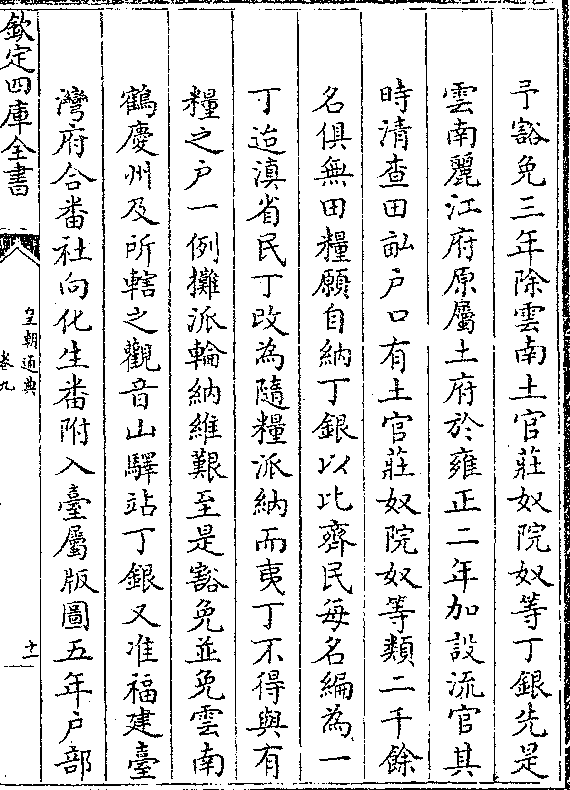 予豁免三年除雲南土官莊奴院奴等丁銀先是
雲南麗江府原屬土府於雍正二年加設流官其
時清查田畝户口有土官莊奴院奴等類二千餘
名俱無田糧願自納丁銀以比齊民每名編為一
丁迨滇省民丁改為隨糧派納而夷丁不得與有
糧之户一例攤派輪納維艱至是豁免並免雲南
鶴慶州及所轄之觀音山驛站丁銀又准福建臺
灣府合番社向化生番附入臺屬版圖五年户部
欽定四庫全書
皇朝通典
卷九
十一